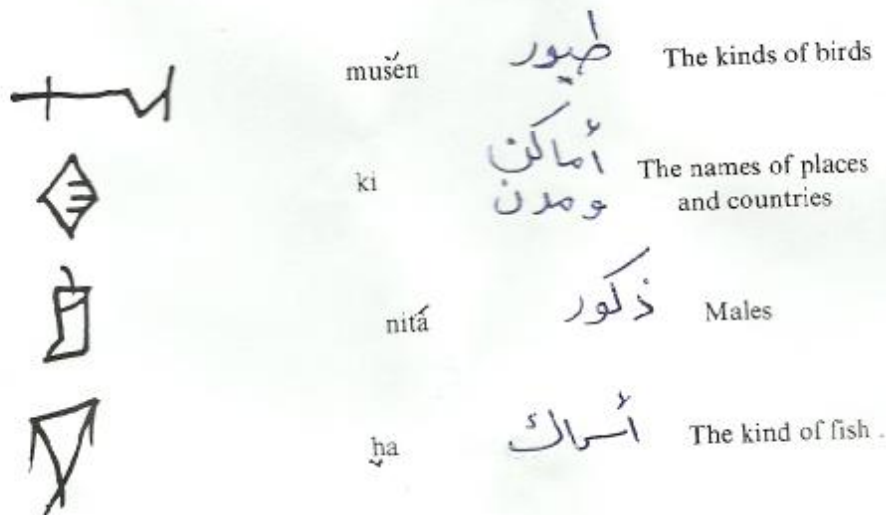 mušen طيور The kinds of birds
ki أماكن The names of places
ومدن and countries
nitá ذكور Males
ḫa أسماك The kind of fish .